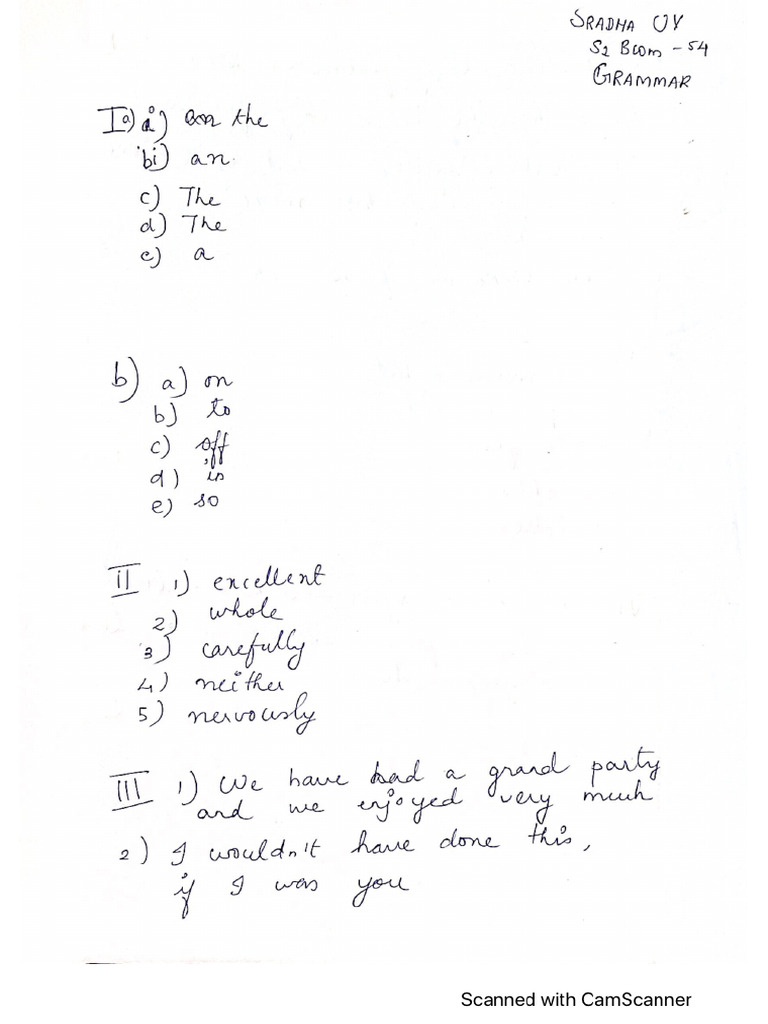 SRADHA UY
S2 Bcom - 54
GRAMMAR
I a) i) the
bi) an
c) The
d) The
e) a
b) a) on
b) to
c) off
d) in
e) so
II 1) excellent
2) whole
3) carefully
4) neither
5) nervously
III 1) We have had a grand party
and we enjoyed very much
2) I wouldn't have done this,
if I was you
Scanned with CamScanner